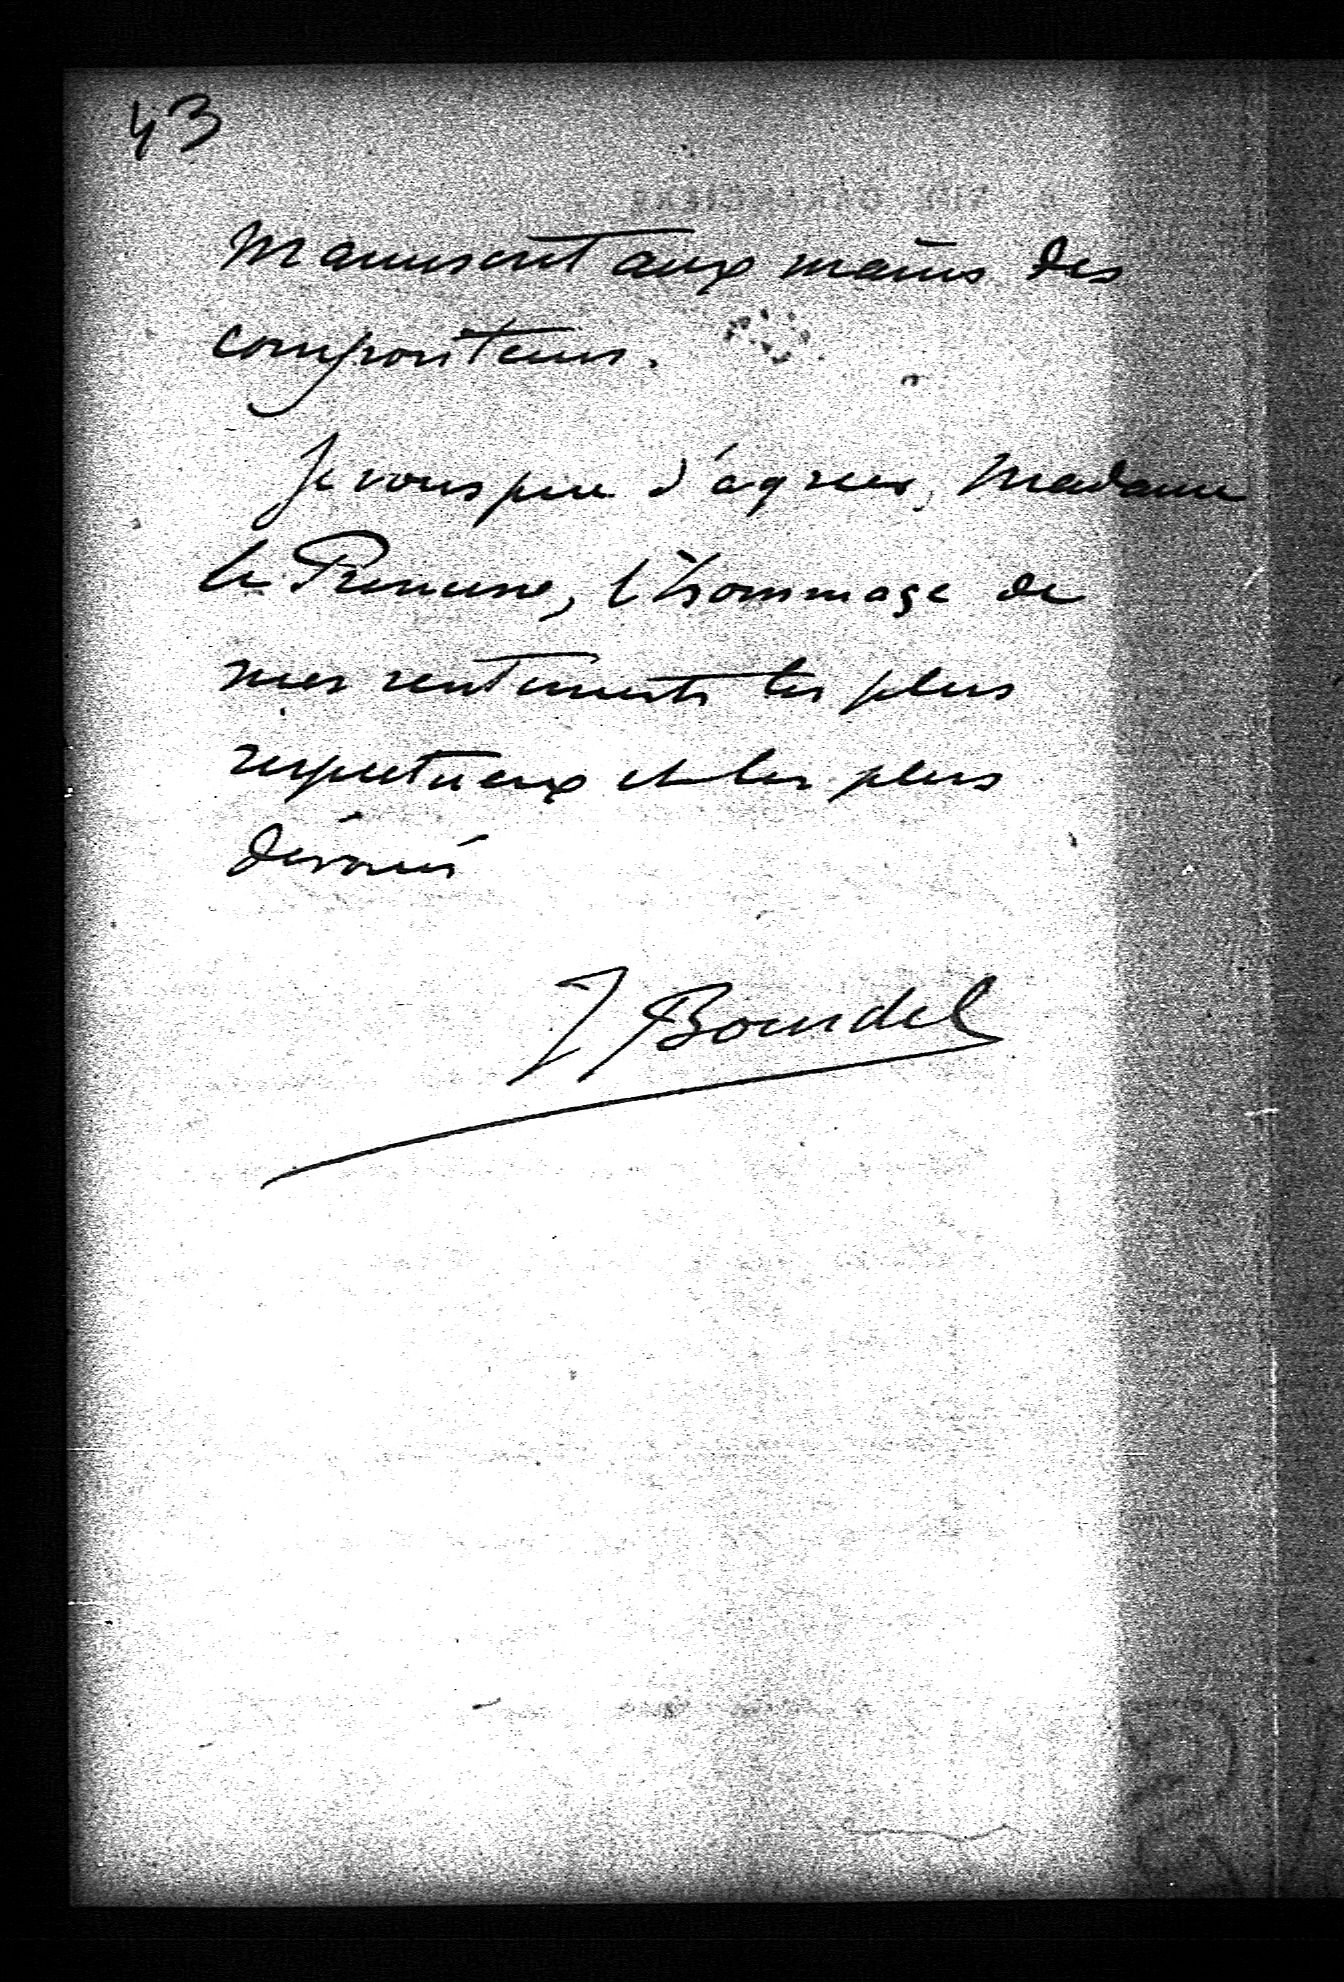 43
manuscrit aux mains des
compositeurs.
Je vous prie d'agréer, Madame
la Princesse, l'hommage de
mes sentiments les plus
respectueux et les plus
dévoués
J Bourdel